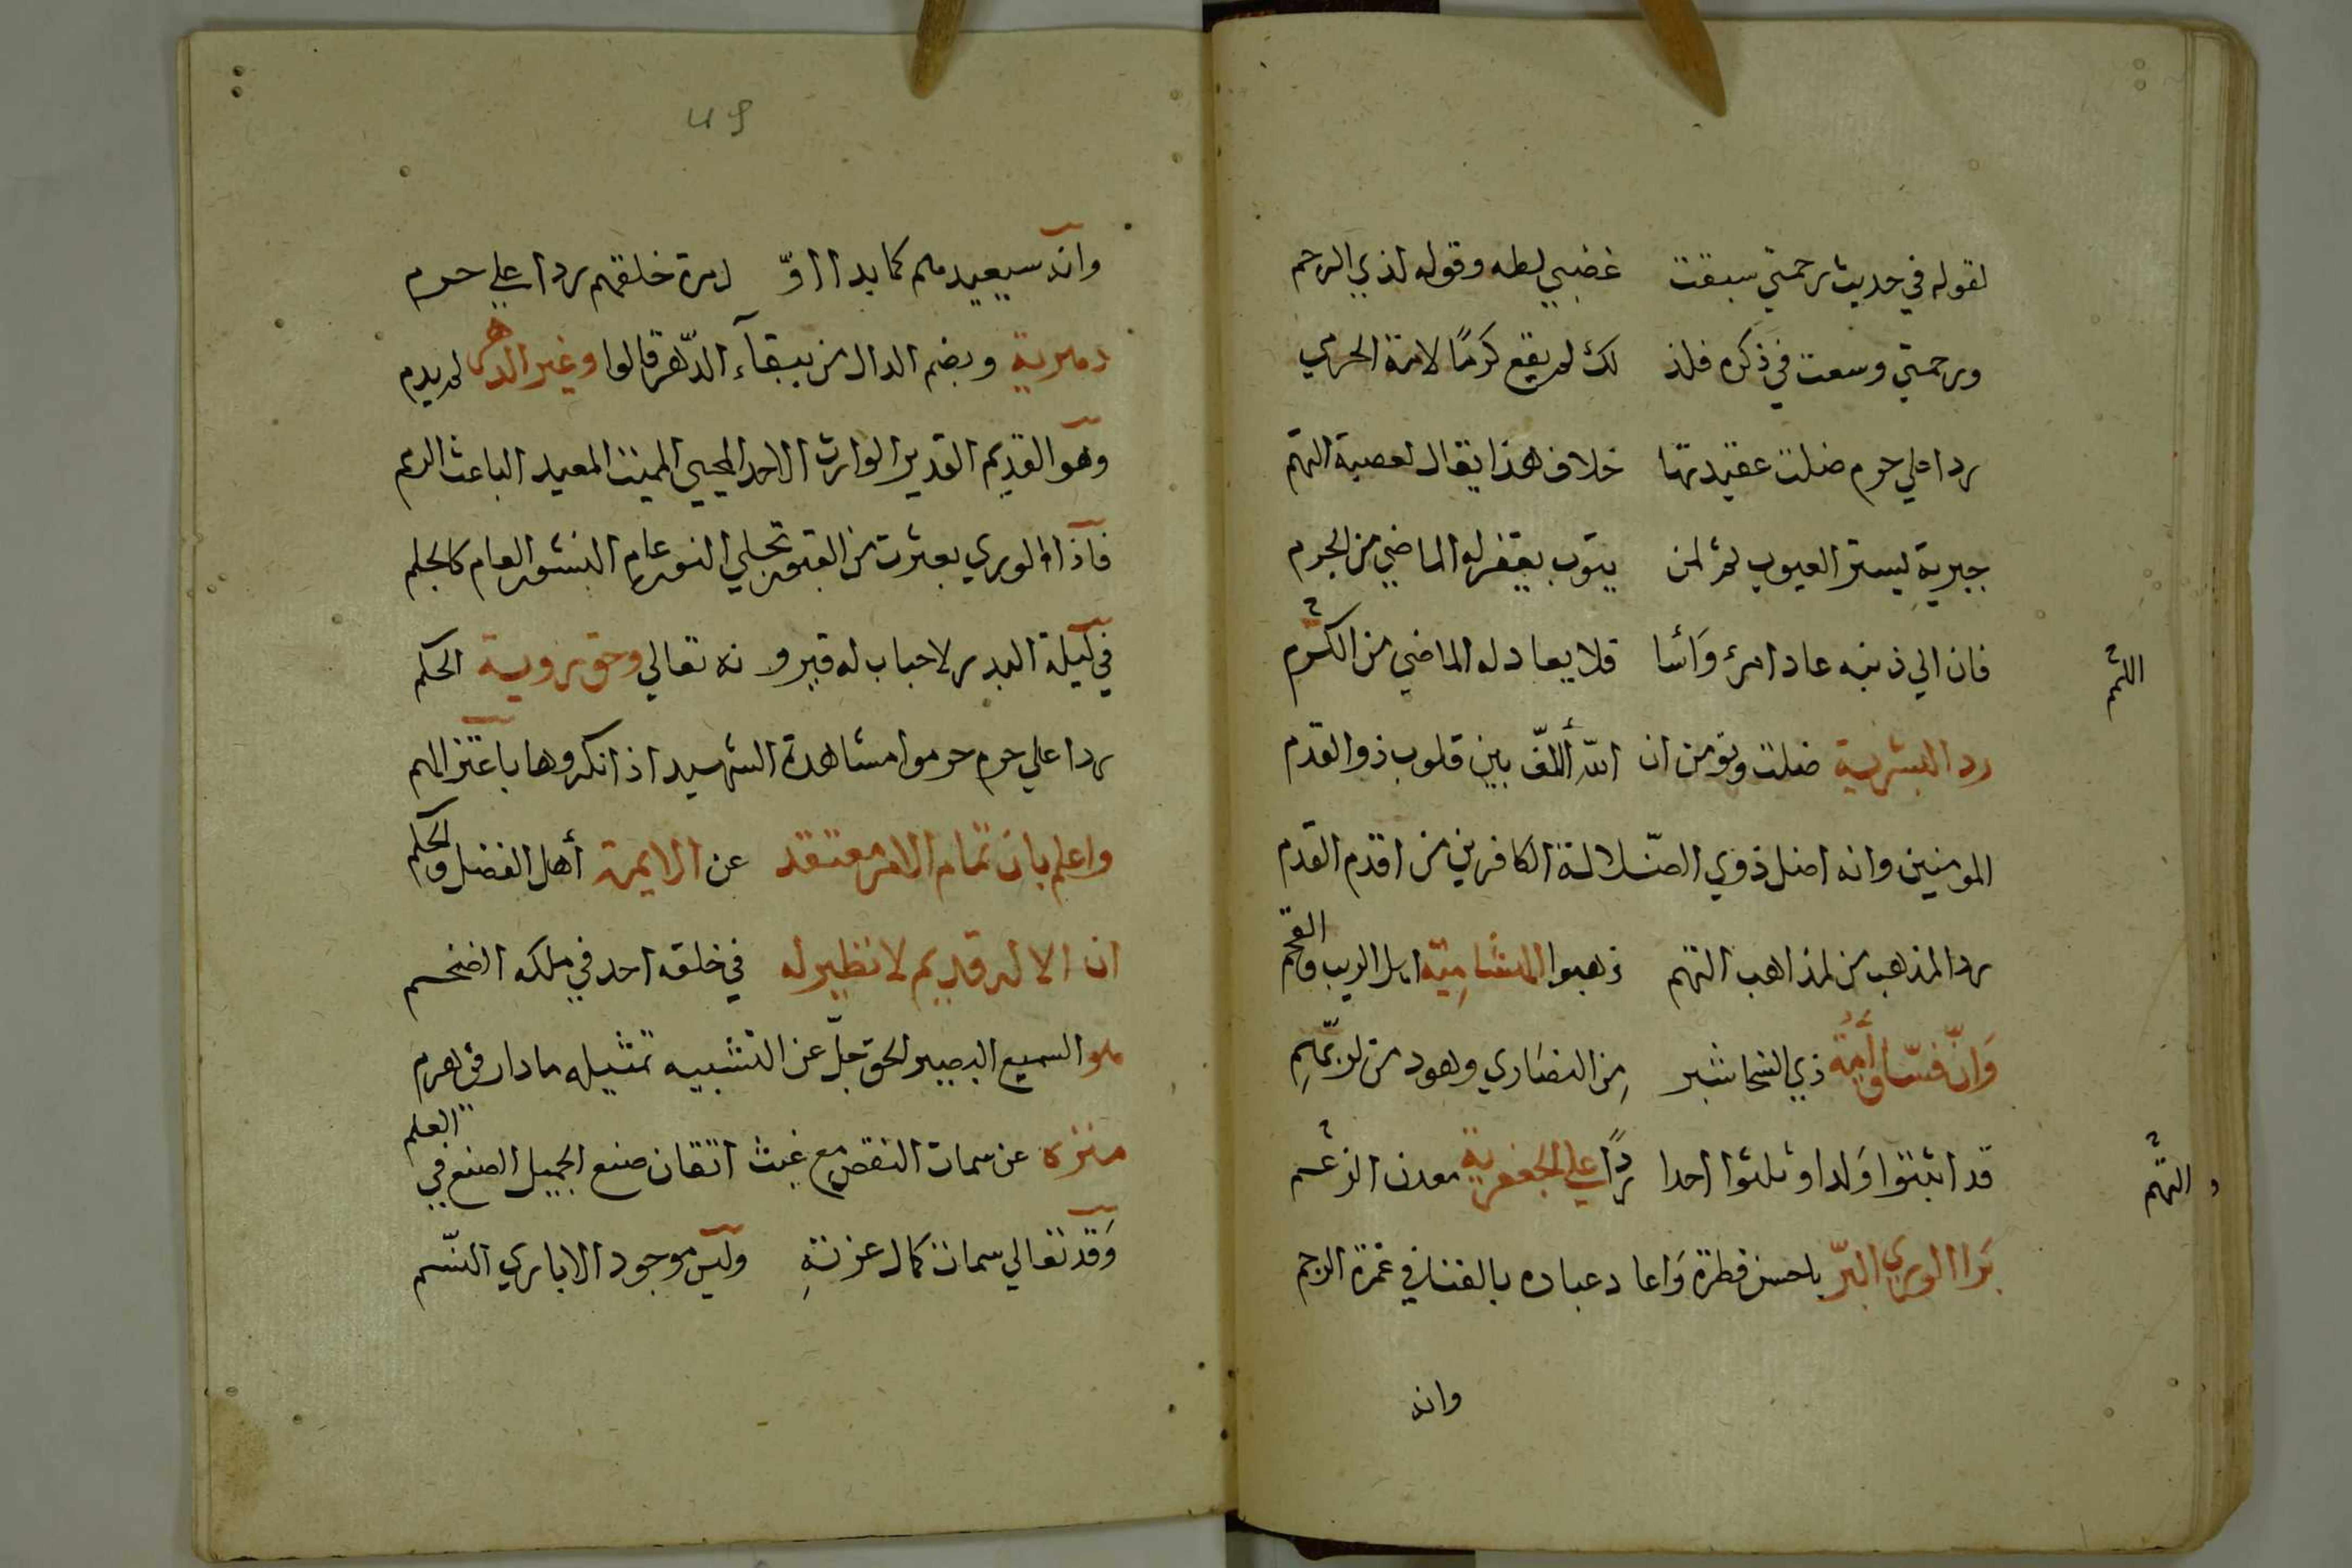 لقوله في حديث رحمتي سبقت غضبي لطه وقوله لذي الرحم
ورحمتي وسعت في ذكره فلذ لك لم يقع كرمًا لامة الحرمي
ردا علي حرم ضلت عقيدتها خلاف هذا يقال لعصبة التهم
جبرية ليستر العيوب ثم لمن يتوب يغفر له الماضي من الجرم
فان الي ذنبه عاد امرؤ وَأسا فلا يعادله الماضي من الكرم
اللثم
رد البشرية ضلت ونومن ان الله أللّف بين قلوب ذو القدم
المومنين وانه اضل ذوي الضّلالة الكافرين من اقدم القدم
ردا لمذهب من لمذاهب التهم ذهبوا الهشامِيّة اهل الريب والقحم
وَانّ فسّاق أُمّة ذي الشجا شبر مِن النصَاري وهود من لوبّهمِ
قد اثبتوا وَلدا وثلثوا احدا ردًّا علي الجعفرية معدن الزعم
و التهم
بَرا الوري البرّ باحسن فطرة وَاعا دعباده بالفنا في غمرة الرجم
وانه
٤٩
وانه سيعيدهم كما بدا اوّ ل مرة خلقهم ردا علي حرم
دهرية وبضم الدال من ببقآء الدّهر قالوا وغير الدهر لم يدم
وهو القديم القدير الوارث الاحد المحيي المميت المعيد الباعث الرمم
فاذا الوري بعثرت من القبور تجلي النور عام النشور العام كالجلم
في ليلة البدر لاحباب له فيرو نه تعالي وحق روية الحكم
ردا علي حرم حرموا مشاهدة الشهيد اذ انكروها باعتزالهم
واعلم بان تمام الامر معتقد عن الايمة أهل الفضل والحكم
ان الاله قديم لا نظير له في خلقه احد في ملكه الضخم
هو السميع البصير الحق جلّ عن التشبيه تمثيله ما دار في هرم
منزه عن سمات النقص مع عبث اتقان صنع الجميل الصنع في العلم
وَقد تعالي سمات كمال عزتهِ وليس موجود الا باري النّسم